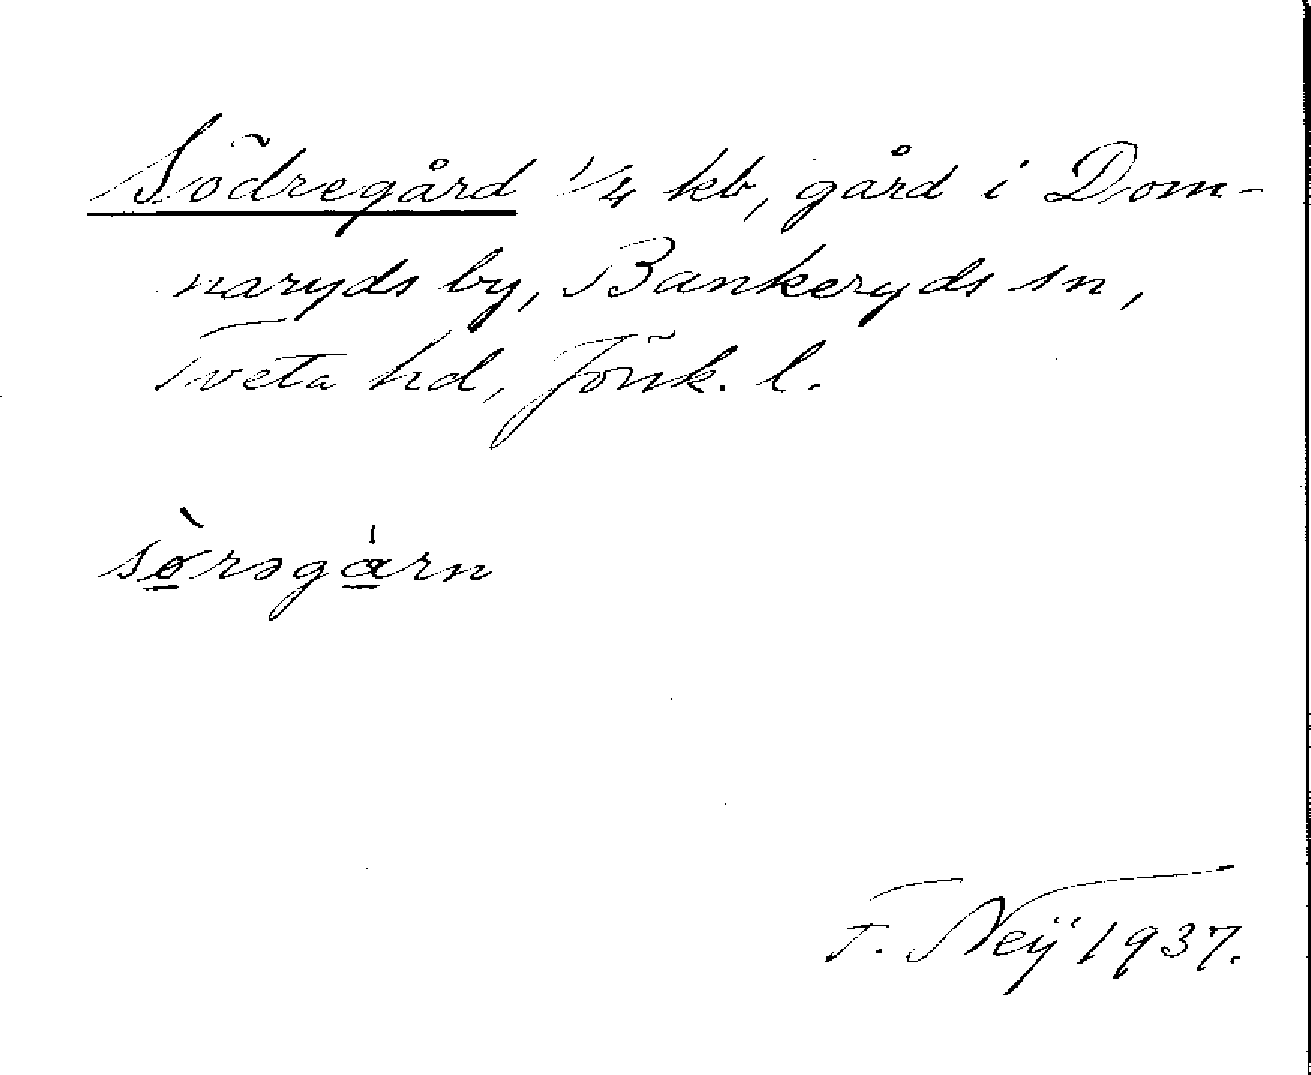 Södregård 1/4 kb, gård i Dom-
naryds by, Bankeryds sn,
Tveta hd, Jönk. l.
sø̀rəgárn
F. Neÿ 1937.